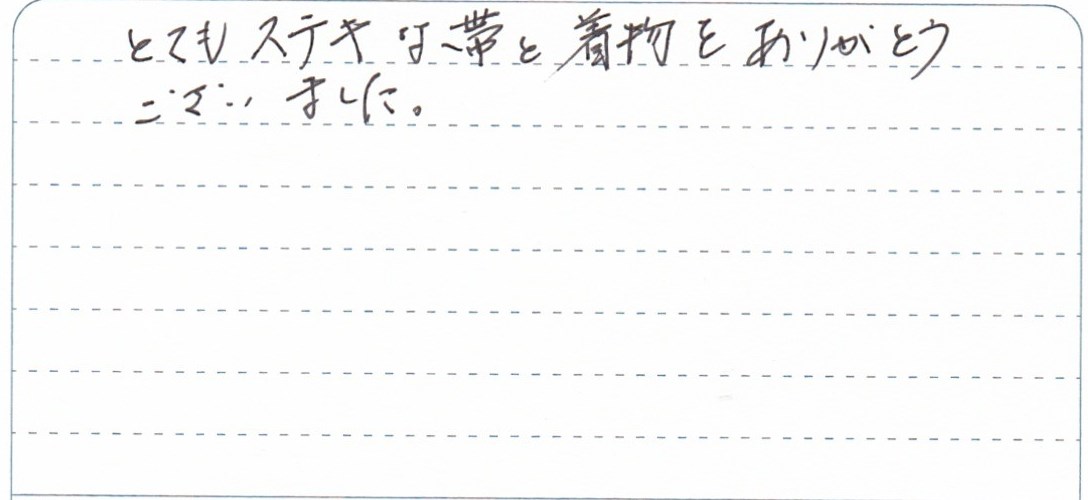 とてもステキな帯と着物をありがとう
ございました。